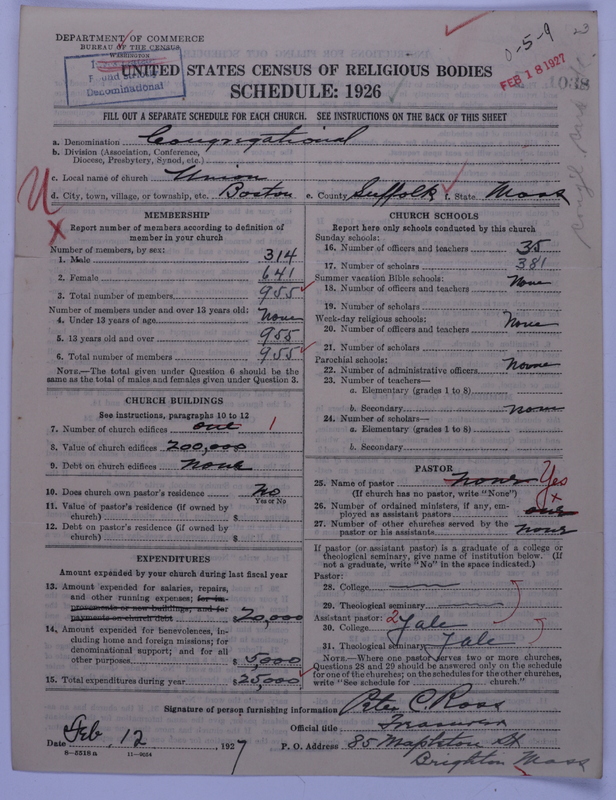 DEPARTMENT OF COMMERCE
BUREAU OF THE CENSUS
WASHINGTON
Denominational
0-5-9
FEB 18 1927
23
1038
UNITED STATES CENSUS OF RELIGIOUS BODIES
SCHEDULE: 1926
FILL OUT A SEPARATE SCHEDULE FOR EACH CHURCH. SEE INSTRUCTIONS ON THE BACK OF THIS SHEET
a. Denomination Congregational
b. Division (Association, Conference, Diocese, Presbytery, Synod, etc.)
c. Local name of church Union
d. City, town, village, or township, etc. Boston e. County Suffolk f. State Mass
U
X
MEMBERSHIP
Report number of members according to definition of
member in your church
Number of members, by sex:
1. Male 314
2. Female 641
3. Total number of members 955
Number of members under and over 13 years old:
4. Under 13 years of age none
5. 13 years old and over 955
6. Total number of members 955
NOTE.—The total given under Question 6 should be
same as the total of males and females given under Question 3.
CHURCH BUILDINGS
See instructions, paragraphs 10 to 12
7. Number of church edifices one 1
8. Value of church edifices 200,000
9. Debt on church edifices none
10. Does church own pastor's residence No
Yes or No
11. Value of pastor's residence (if owned by
church) $
12. Debt on pastor's residence (if owned by
church) $
EXPENDITURES
Amount expended by your church during last fiscal year
13. Amount expended for salaries, repairs,
and other running expenses; for im-
provements or new buildings; and for
payments on church debt $ 20,000
14. Amount expended for benevolences, in-
cluding home and foreign missions; for
denominational support; and for all
other purposes $ 5000
15. Total expenditures during year $ 25,000
CHURCH SCHOOLS
Report here only schools conducted by this church
Sunday schools:
16. Number of officers and teachers 35
17. Number of scholars 381
Summer vacation Bible schools:
18. Number of officers and teachers None
19. Number of scholars
Week-day religious schools:
20. Number of officers and teachers None
21. Number of scholars
Parochial schools:
22. Number of administrative officers None
23. Number of teachers—
a. Elementary (grades 1 to 8)
b. Secondary none
24. Number of scholars—
a. Elementary (grades 1 to 8)
b. Secondary
PASTOR
25. Name of pastor none Yes
(If church has no pastor, write "None") x
26. Number of ordained ministers, if any, em-
ployed as assistant pastors one
27. Number of other churches served by the
pastor or his assistants none
If pastor (or assistant pastor) is a graduate of a college or
theological seminary, give name of institution below. (If
not a graduate, write "No" in the space indicated.)
Pastor:
28. College
29. Theological seminary
Assistant pastor: 2
30. College Yale
31. Theological seminary Yale
NOTE.—Where one pastor serves two or more churches,
Questions 28 and 29 should be answered only on the schedule
for one of the churches; on the schedules for the other churches,
write "See schedule for church."
Signature of person furnishing information Peter C. Ross
Official title Treasurer
Date Feb. 12, 1927 P. O. Address 85 Mapleton St
Brighton Mass
8-5518 a 11-9054